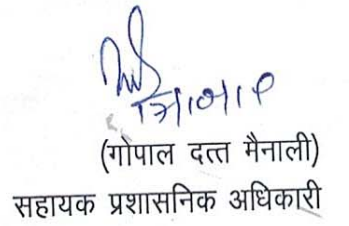 (गोपाल दत्त मैनाली)
सहायक प्रशासनिक अधिकारी